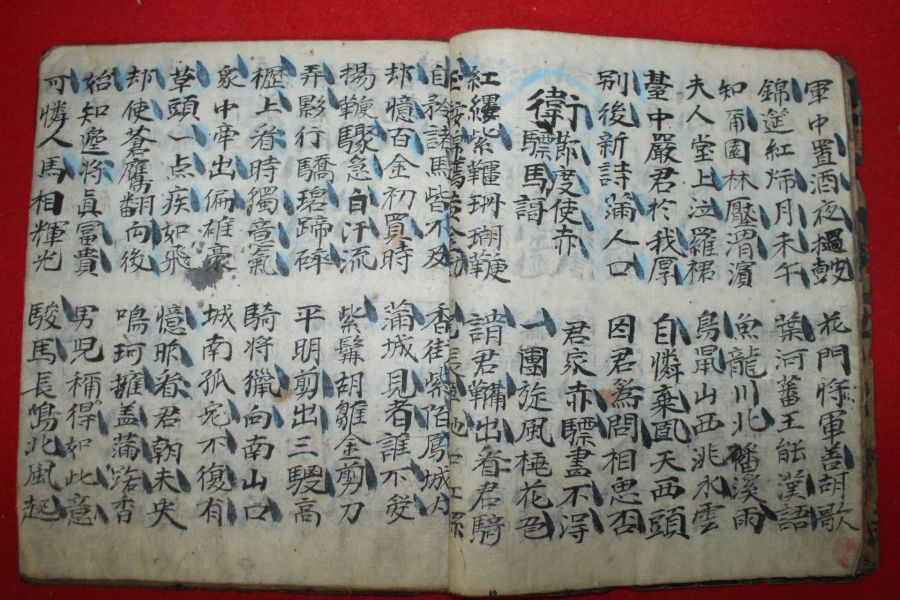 軍中置酒夜撾鼓 花門將軍善胡歌
錦筵紅燭月未午 葉河蕃王能漢語
知爾園林壓渭濱 魚龍川北磻溪雨
夫人堂上泣羅裙 鳥鼠山西洮水雲
臺中嚴君於我厚 自憐棄置天西頭
別後新詩滿人口 因君為問相思否
衛節度使赤 君家赤驃畫不得
驃馬謌 一團旋風桃花色
紅纓紫韁珊瑚鞭 請君鞴出看君騎
玉鞍錦韉黃金勒
自矜諸馬皆不及 香街紫陌鳳城內
却憶百金初買時 滿城見者誰不愛
揚鞭驟急白汗流 紫髯胡雛金剪刀
弄影行驕碧蹄碎 平明剪出三騣高
櫪上看時獨意氣 騎將獵向南山口
衆中牽出偏雄豪 城南孤兔不復有
草頭一点疾如飛 憶昨看君朝未央
却使蒼鷹翻向後 鳴珂擁盖滿路香
始知邊將真富貴 男兒稱得如此意
可憐人馬相輝光 駿馬長鳴北風起